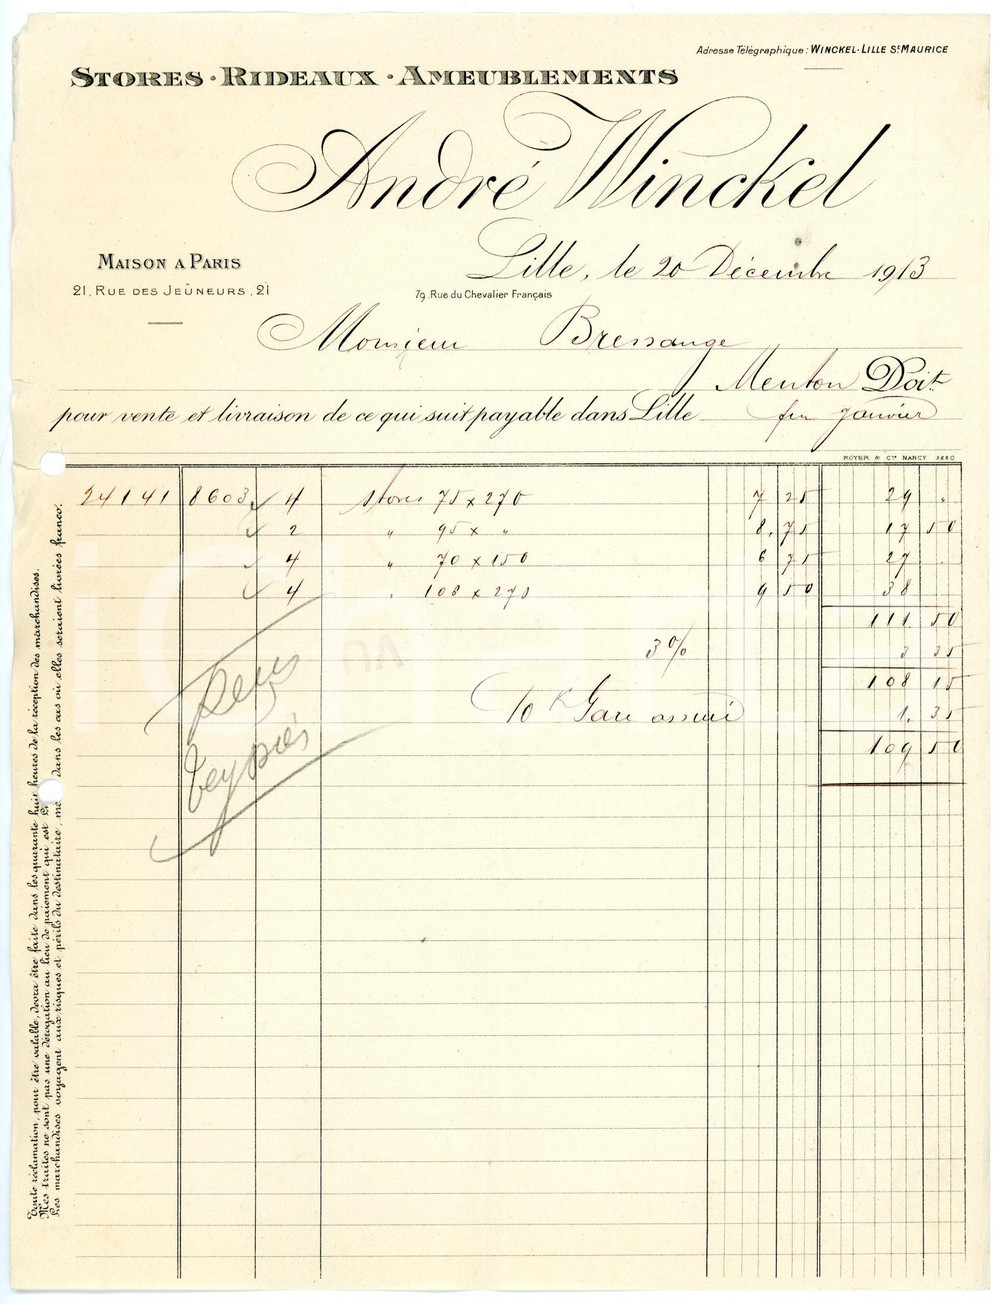 Adresse Télégraphique: WINCKEL-LILLE ST MAURICE
STORES · RIDEAUX · AMEUBLEMENTS
André Winckel
MAISON A PARIS
21, RUE DES JEÛNEURS, 21
Lille, le 20 Décembre 1913
79, Rue du Chevalier Français
Monsieur Bressange
Menton Doit
pour vente et livraison de ce qui suit payable dans Lille fin janvier
ROYER & Cie NANCY 3260
24141 8603 4 stores 75 x 270 7 25 29 "
2 " 95 x " 8,75 17 50
4 " 70 x 150 6 75 27 .
4 " 108 x 270 9 50 38
111 50
3% 3 35
108 15
10 K Gare 1,35
109 50
Toute réclamation, pour être valable, devra être faite dans les quarante huit heures de la réception des marchandises.
Mes traites ne sont pas une dérogation au lieu de paiement qui est
Les marchandises voyagent aux risques et périls du destinataire, dans les cas où elles seraient livrées franco.